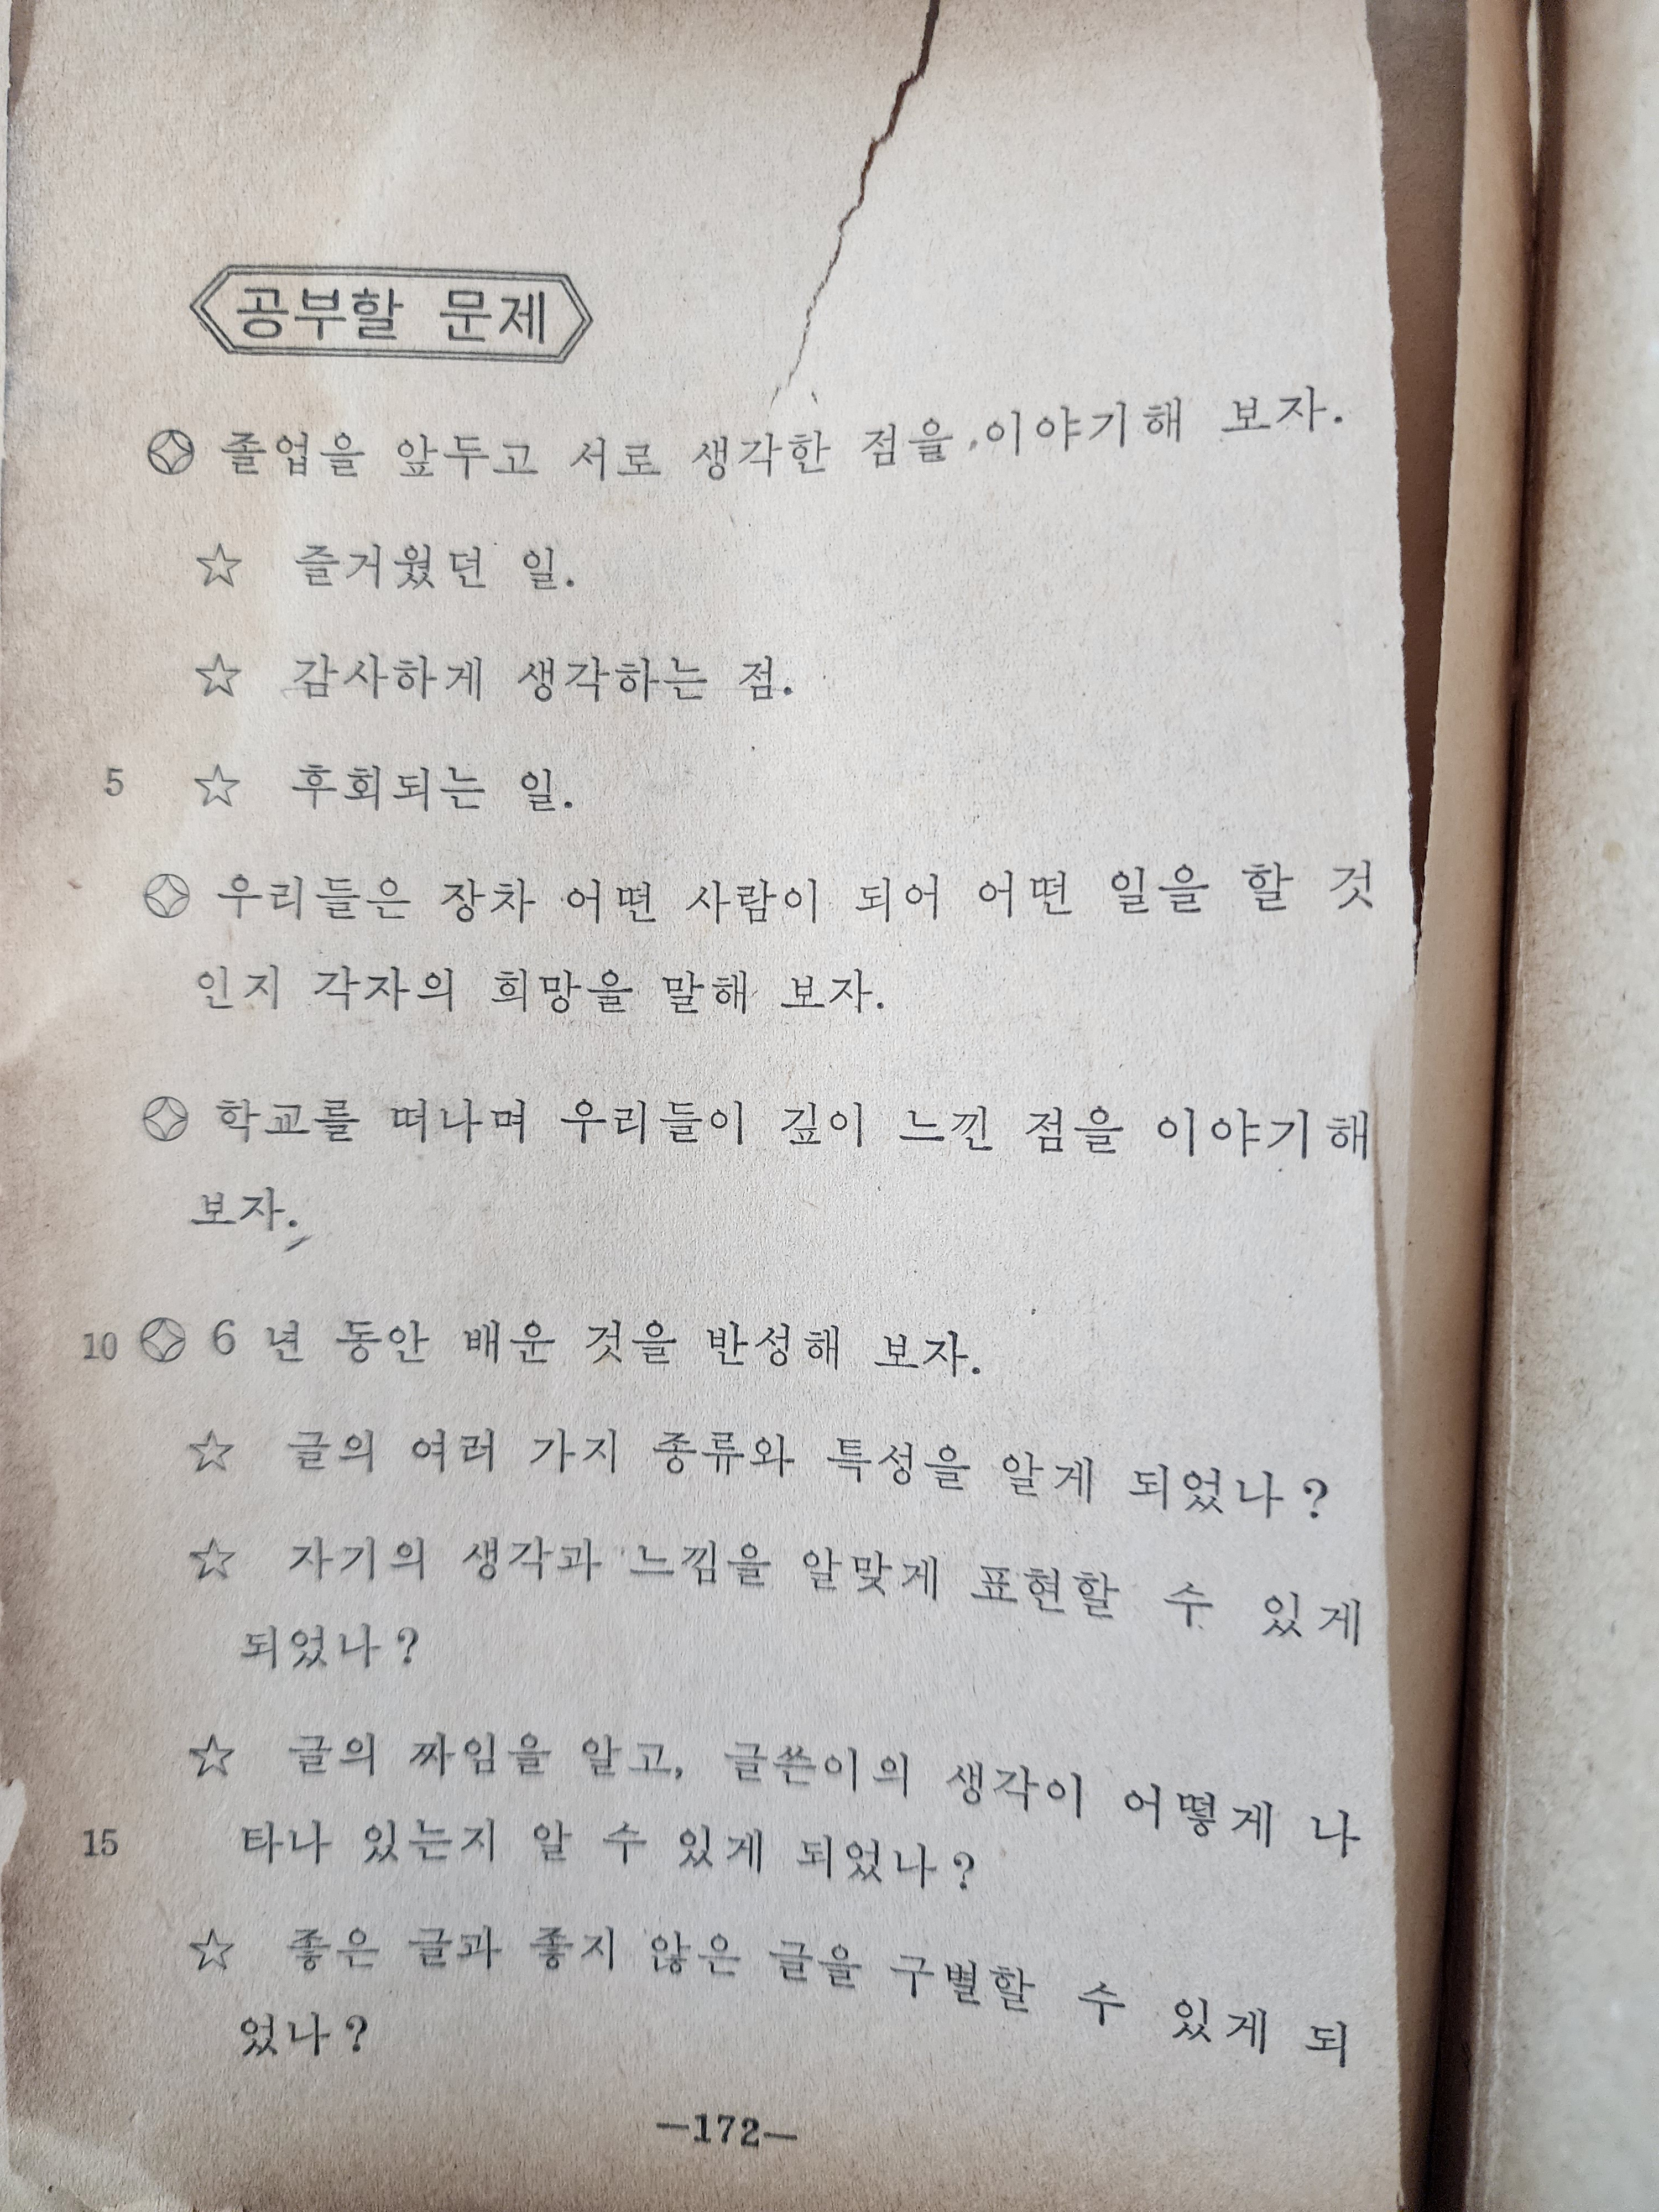 공부할 문제
졸업을 앞두고 서로 생각한 점을 이야기해 보자.
☆ 즐거웠던 일.
☆ 감사하게 생각하는 점.
5 ☆ 후회되는 일.
우리들은 장차 어떤 사람이 되어 어떤 일을 할 것
인지 각자의 희망을 말해 보자.
학교를 떠나며 우리들이 깊이 느낀 점을 이야기해
보자.
10 6 년 동안 배운 것을 반성해 보자.
☆ 글의 여러 가지 종류와 특성을 알게 되었나?
☆ 자기의 생각과 느낌을 알맞게 표현할 수 있게
되었나?
☆ 글의 짜임을 알고, 글쓴이의 생각이 어떻게 나
15 타나 있는지 알 수 있게 되었나?
☆ 좋은 글과 좋지 않은 글을 구별할 수 있게 되
었나?
—172—